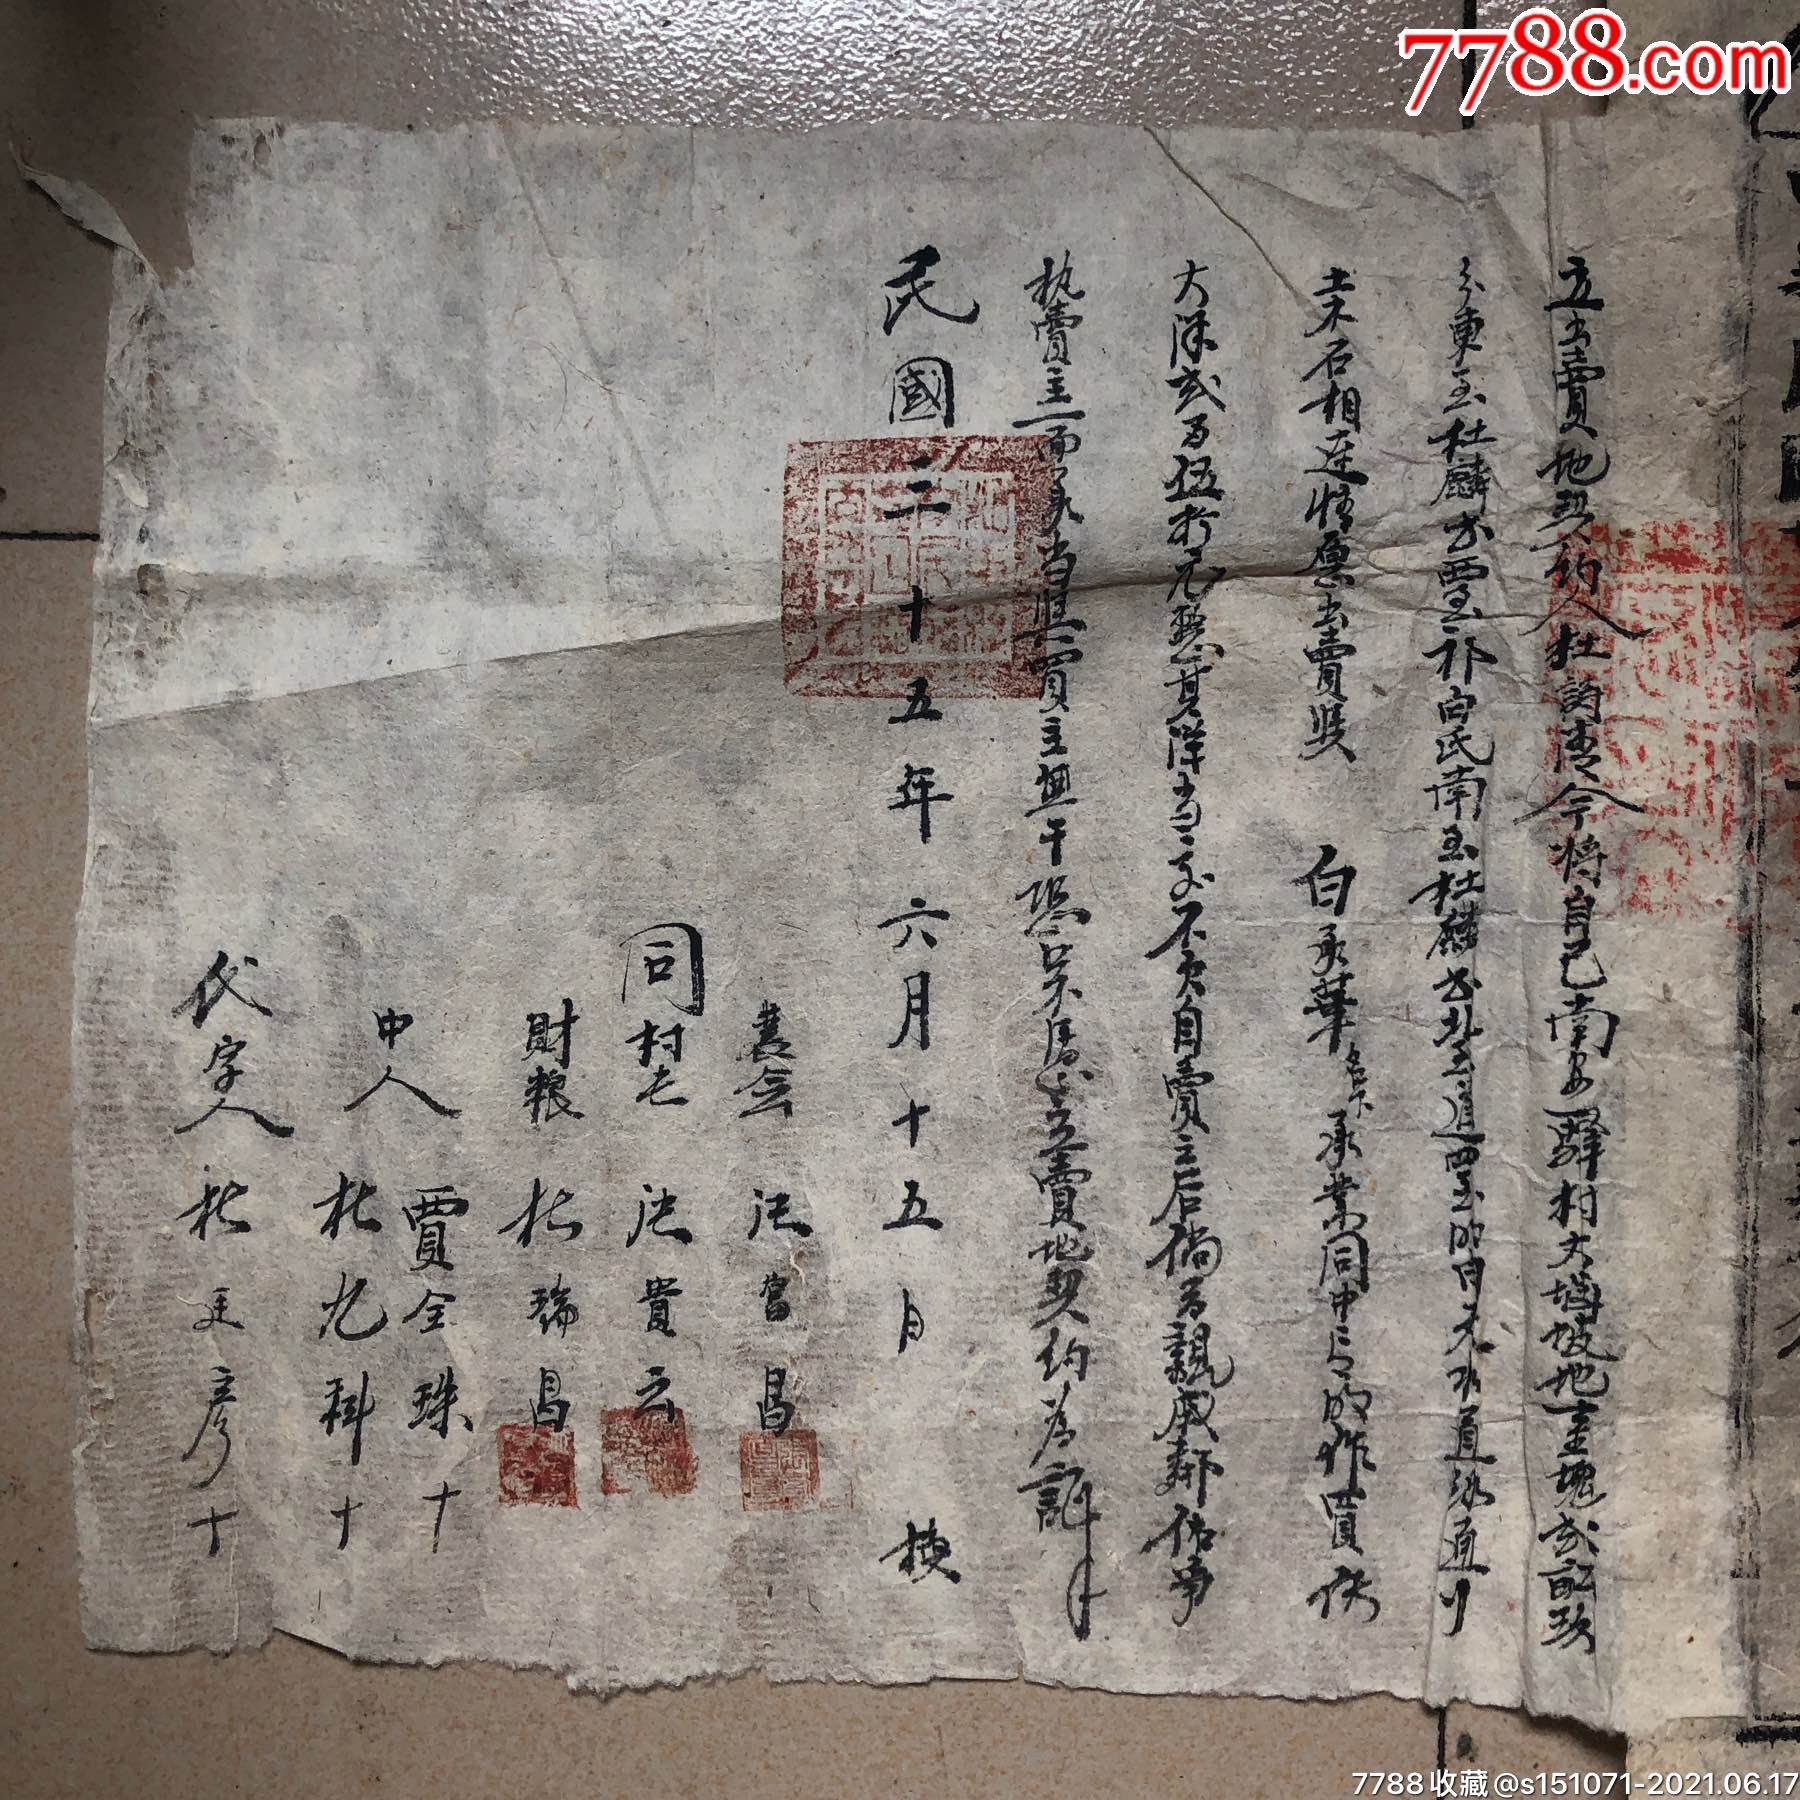 7788.com
立出賣地契約人杜詢清今將自己南安驛村大塔坡地壹塊貳畝玖
分東至杜麟書西至祁白氏南至杜麟書北至道四至明白天水道依道行
土木石相連情愿出賣與 白承華名下承業同中言明作賣價
大洋貳百伍拾元整其洋当交不欠自賣之后倘有親戚鄰佑争
执賣主一面承当與買主無干恐口無憑立賣地契約為証
民國二十五年六月十五日 積
農会 昌
同 村長 貴云
財粮 杜瑞昌
中人 賈全珠 十
杜九科 十
代字人 杜廷彥 十
7788收藏@s151071-2021.06.17